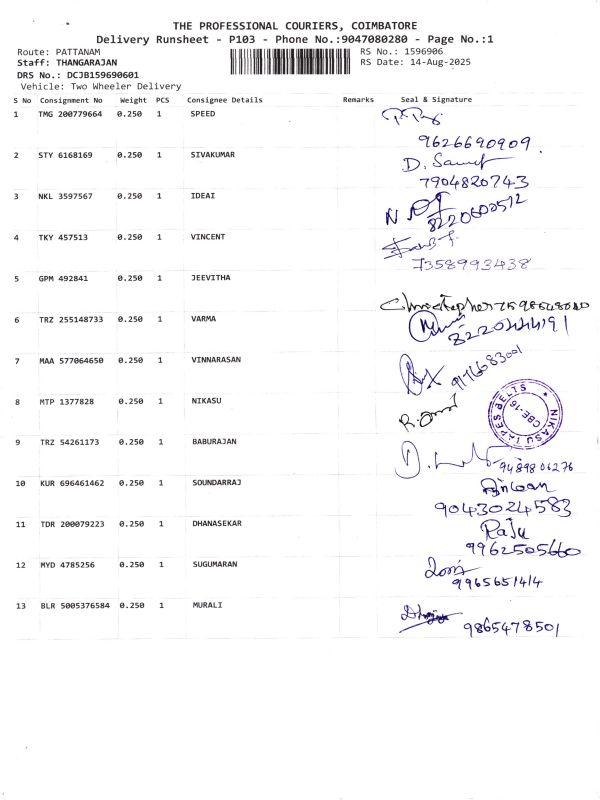 THE PROFESSIONAL COURIERS, COIMBATORE
Delivery Runsheet - P103 - Phone No.:9047080280 - Page No.:1
Route: PATTANAM RS No.: 1596906
Staff: THANGARAJAN RS Date: 14-Aug-2025
DRS No.: DCJB159690601
Vehicle: Two Wheeler Delivery
S No Consignment No Weight PCS Consignee Details Remarks Seal & Signature
1 TMG 200779664 0.250 1 SPEED
9626690909
2 STY 6168169 0.250 1 SIVAKUMAR
7904820743
3 NKL 3597567 0.250 1 IDEAI
4 TKY 457513 0.250 1 VINCENT
7358993438
5 GPM 492841 0.250 1 JEEVITHA
Christopher
6 TRZ 255148733 0.250 1 VARMA
7 MAA 577064650 0.250 1 VINNARASAN
9176683001
8 MTP 1377828 0.250 1 NIKASU
NIKASU TAPES BELTS
CBE-16
9 TRZ 54261173 0.250 1 BABURAJAN
9489806276
10 KUR 696461462 0.250 1 SOUNDARRAJ
9043024583
11 TDR 200079223 0.250 1 DHANASEKAR
Raju
9962505660
12 MYD 4785256 0.250 1 SUGUMARAN
9965651414
13 BLR 5005376584 0.250 1 MURALI
9865478501